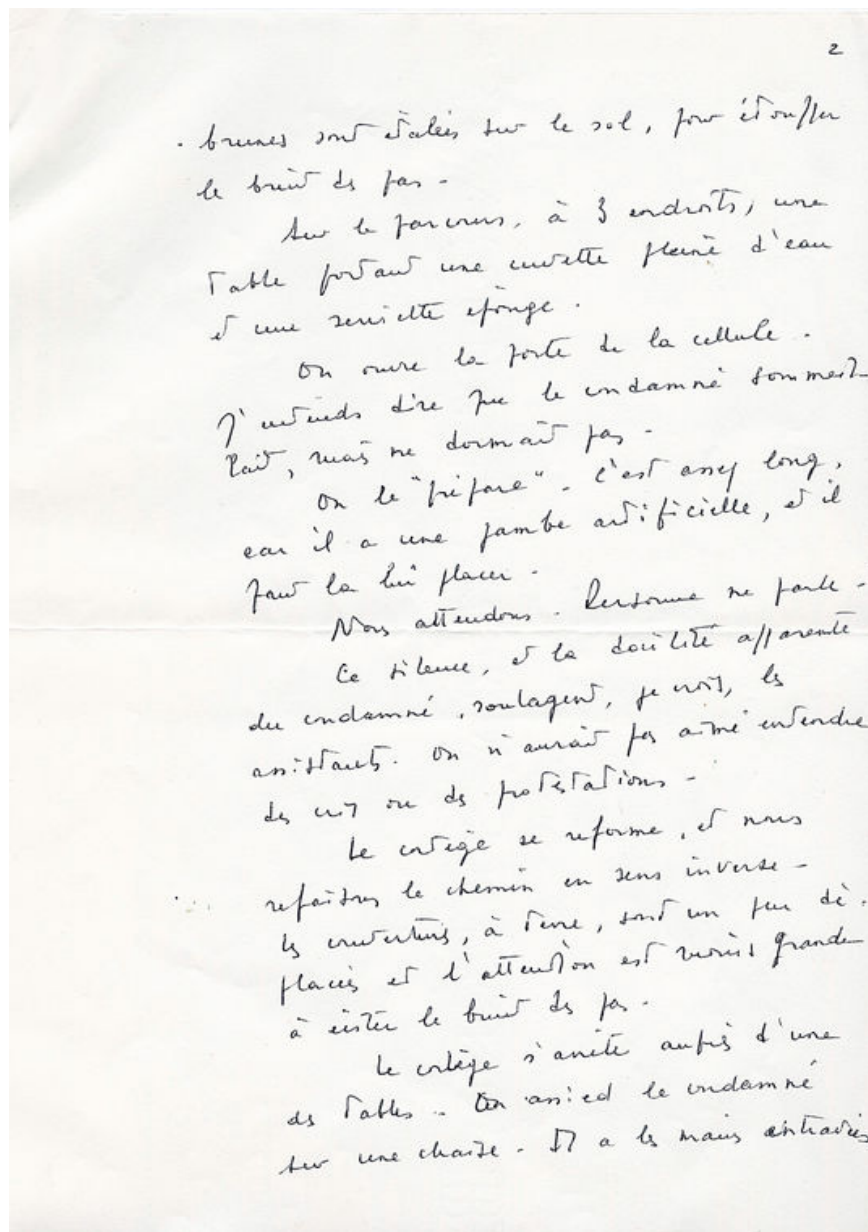 2
brunes sont étalées sur le sol, pour étouffer
le bruit des pas -
Sur le parcours, à 3 endroits, une
table portant une cuvette pleine d'eau
et une serviette éponge.
On ouvre la porte de la cellule.
J'entends dire que le condamné sommeil-
lait, mais ne dormait pas -
On le "prépare". C'est assez long,
car il a une jambe artificielle, et il
faut la lui placer.
Nous attendons. Personne ne parle -
Ce silence, et la docilité apparente
du condamné, soulagent, je crois, les
assistants. On n'aurait pas aimé entendre
des cris ou des protestations -
Le cortège se reforme, et nous
refaisons le chemin en sens inverse -
Les couvertures, à terre, sont un peu dé-
placées et l'attention est moins grande
à éviter le bruit des pas.
Le cortège s'arrête auprès d'une
des tables - On assied le condamné
sur une chaise - Il a les mains entravées